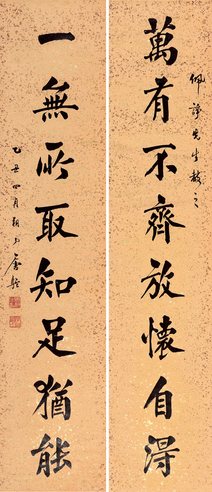 萬有不齊放懷自得
佩諍先生教之
一無所取知足猶能
乙丑四月朔